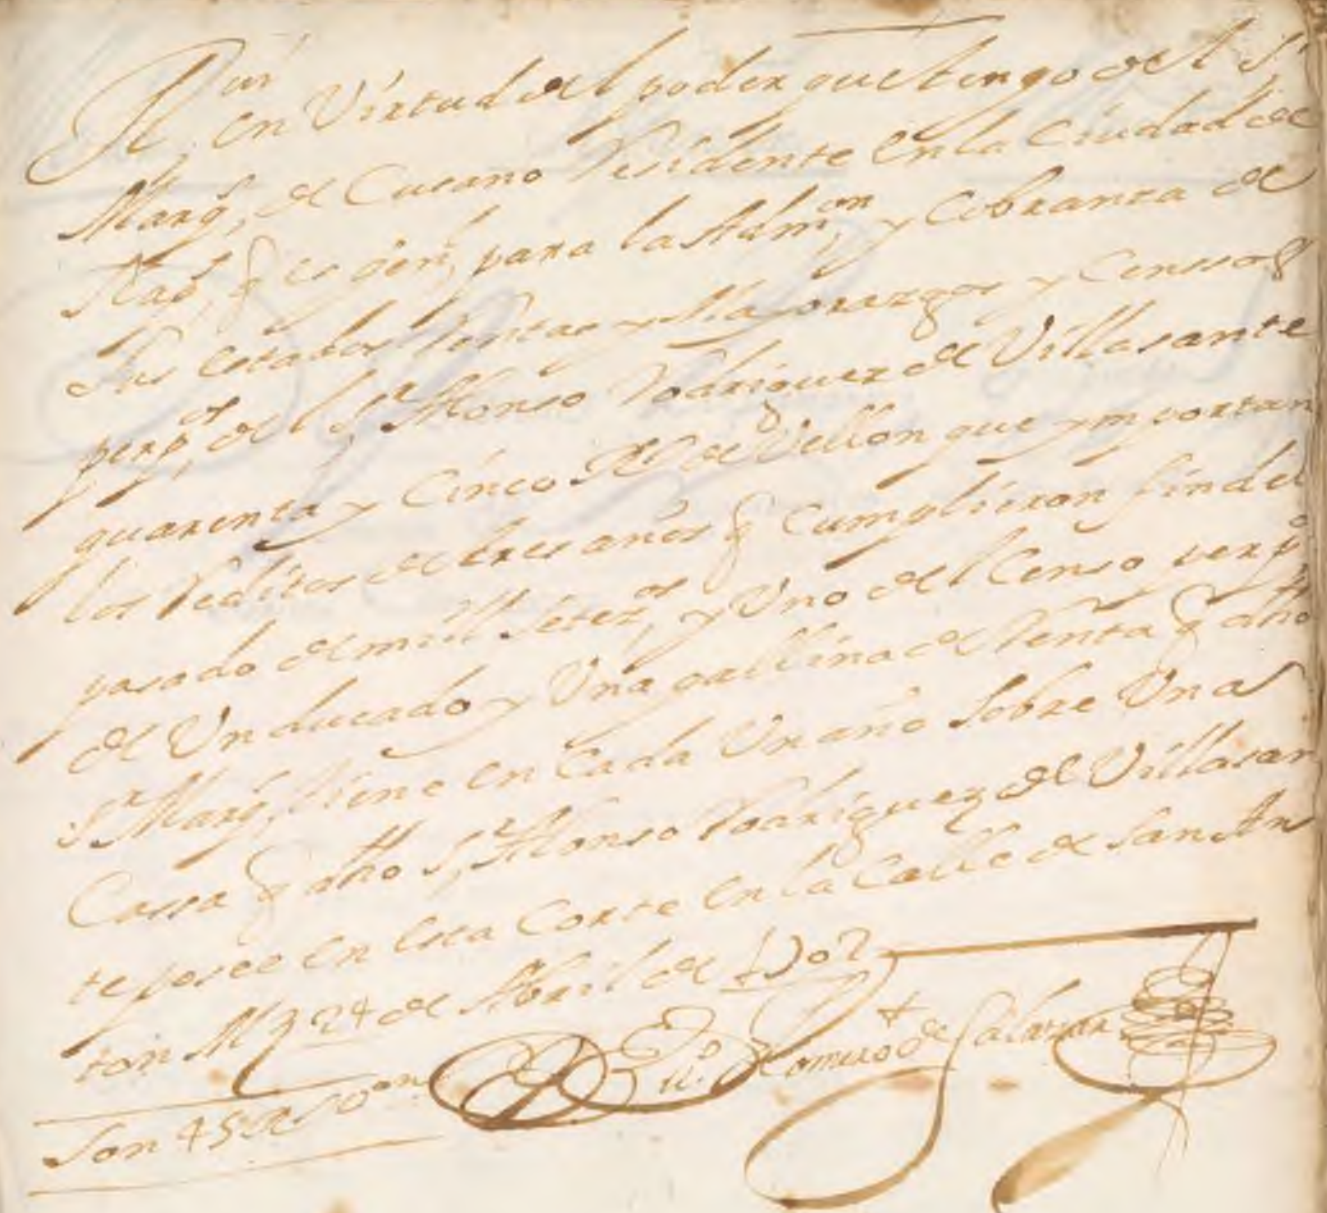 Rvi en Virtud del poder que tengo del Sr
Marqs, de Cusano Residente en la Ciudad de
Nas, q es genl, para la Admon, y Cobranza de
Sus estados Rentas y Mayorazgos y Censsos
perpos, del Sr Alonso Rodriguez de Villasante
quarenta y Cinco Rs de Vellon que ymportan
los Reditos de tres años q Cumplieron fin del
pasado de mill setezos, y Uno del Censo perpo
de Un ducado y Una gallina de Renta q dho
Sr Marqs, tiene en Cada Un año Sobre Unas
Cassa q dho Sr, Alonso Rodriguez de Villasan
te posee en esta Corte en la Calle de San An
ton Md 24 de Abril de 1702
Son 45 Rs Von
Romero de Salazar